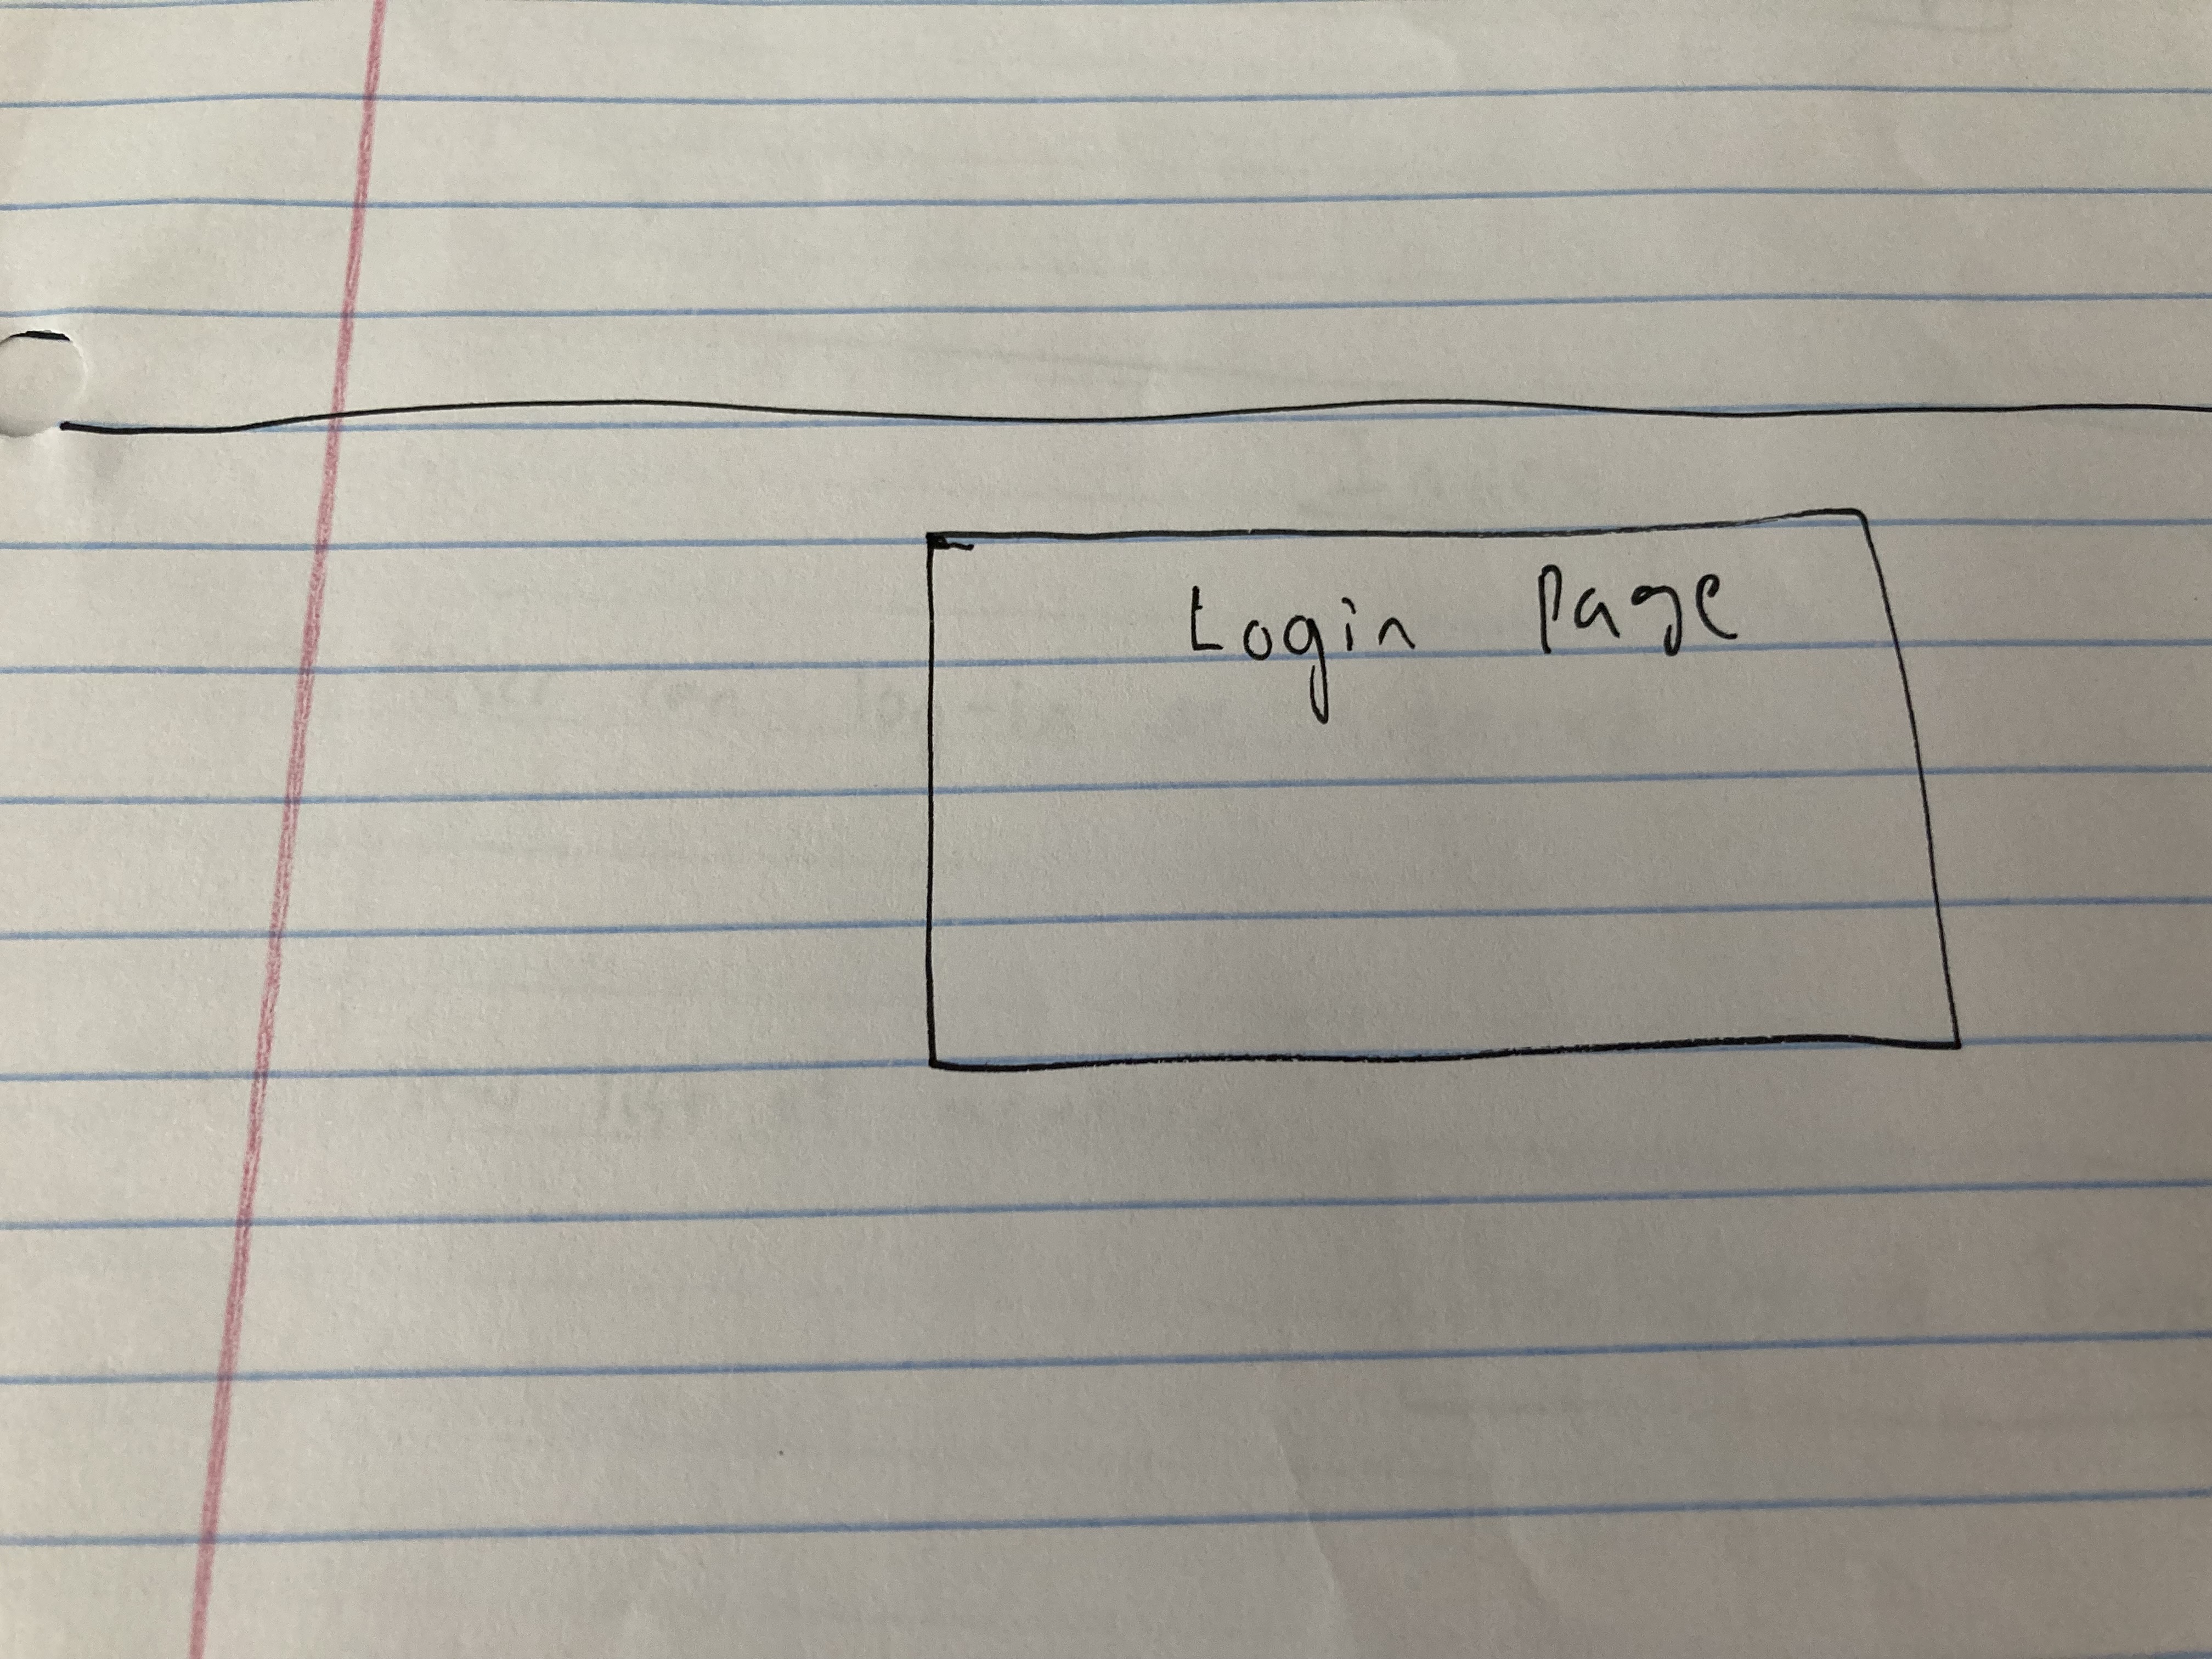 Login Page